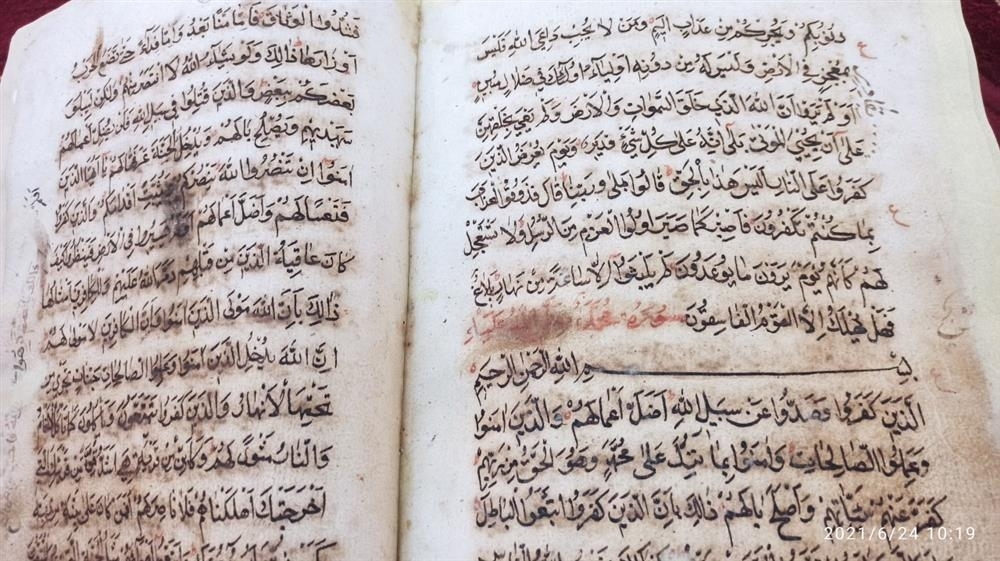 ذنوبكم ويجركم من عذاب اليم ومن لا يجب داعي الله فليس
بمعجز في الارض وليس له من دونه اولياء اولئك في ضلال مبين
اولم يروا ان الله الذي خلق السموات والارض ولم يعي بخلقهن
على ان يحيي الموتى بلى انه على كل شيء قدير ويوم يعرض الذين
كفروا على النار اليس هذا بالحق قالوا بلى وربنا قال فذوقوا العذاب
بما كنتم تكفرون فاصبر كما صبر اولوا العزم من الرسل ولا تستعجل
لهم كانهم يوم يرون ما يوعدون لم يلبثوا الا ساعة من نهار بلاغ
فهل يهلك الا القوم الفاسقون سورة محمد
بسم الله الرحمن الرحيم
الذين كفروا وصدوا عن سبيل الله اضل اعمالهم والذين امنوا
وعملوا الصالحات وامنوا بما نزل على محمد وهو الحق من ربهم
كفر عنهم سيئاتهم واصلح بالهم ذلك بان الذين كفروا اتبعوا الباطل
فشدوا الوثاق فاما منا بعد واما فداء حتى تضع الحرب
اوزارها ذلك ولو يشاء الله لا انتصر منهم ولكن ليبلو
بعضكم ببعض والذين قتلوا في سبيل الله فلن يضل اعمالهم
سيهديهم ويصلح بالهم ويدخلهم الجنة عرفها لهم يا ايها الذين
امنوا ان تنصروا الله ينصركم ويثبت اقدامكم والذين كفروا
فتعسا لهم واضل اعمالهم يسيروا في الارض فينظروا كيف
كان عاقبة الذين من قبلهم دمر الله عليهم وللكافرين امثالها
ذلك بان الله مولى الذين امنوا وان الكافرين لا مولى لهم
ان الله يدخل الذين امنوا وعملوا الصالحات جنات تجري من
تحتها الانهار والذين كفروا يتمتعون وياكلون كما تاكل الانعام
والنار مثوى لهم وكاين من قرية هي اشد قوة من قريتك التي
اخرجتك اهلكناهم فلا ناصر لهم افمن كان على بينة من ربه
2021/6/24 10:19